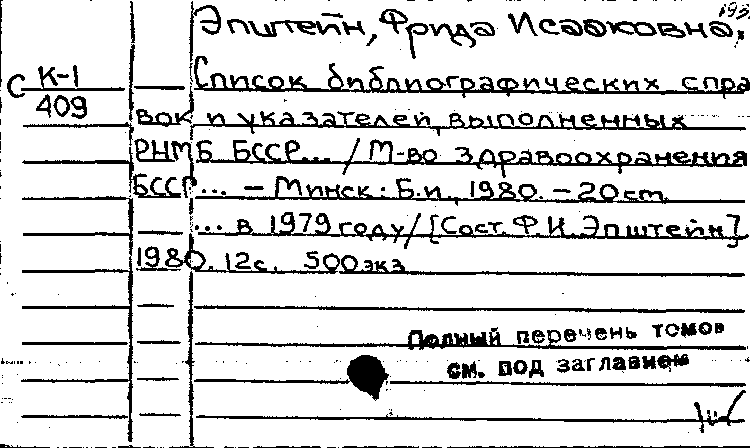 193
Эпштейн, Фрида Исааковна.
С К-1 Список библиографических спра
409 вок и указателей, выполненных
РНМБ БССР... / М-во здравоохранения
БССР... – Минск: Б.и., 1980. – 20 cm.
... в 1979 году / [Сост. Ф.И. Эпштейн]
1980. 12с. 500 экз
Полный перечень томов
см. под заглавием